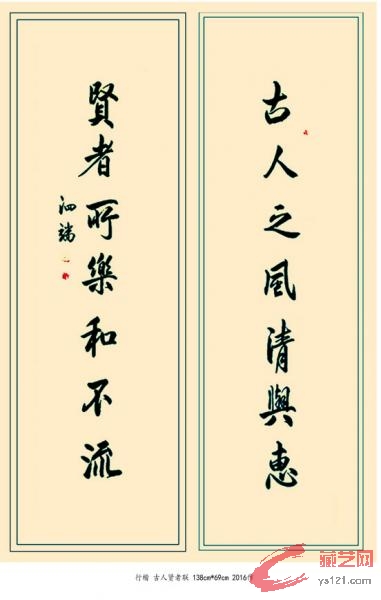 古人之風清與惠
賢者所樂和不流
泗端
行楷 古人贤者联 138cm*69cm 2016作
藏艺网
ys121.com